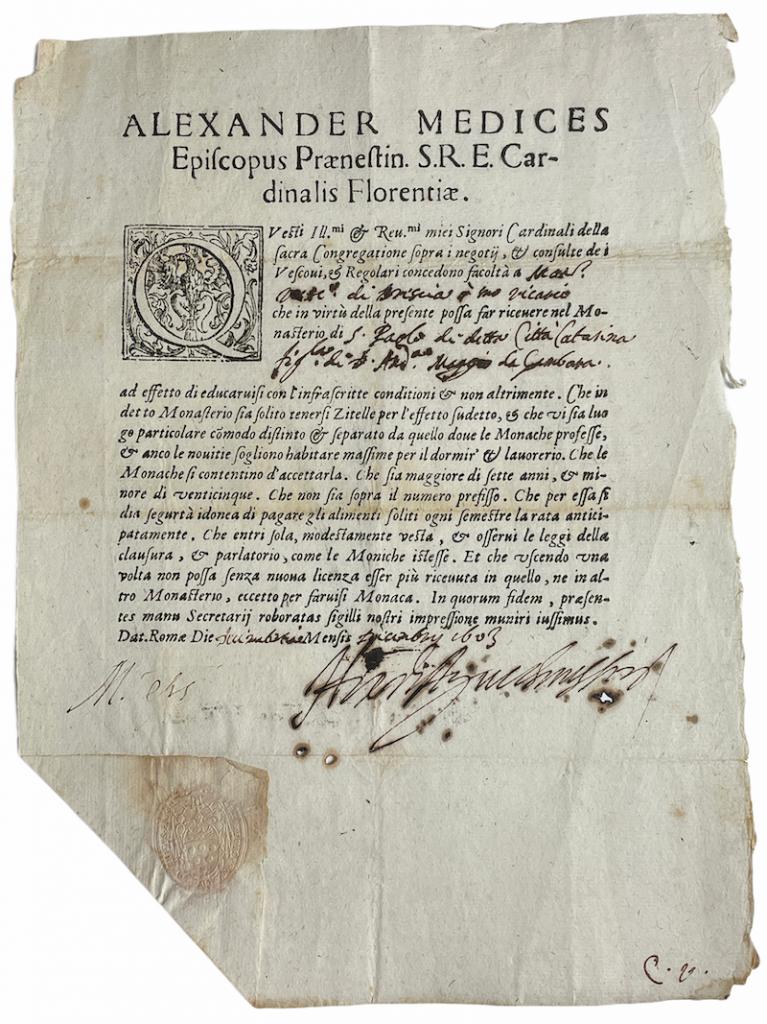 ALEXANDER MEDICES
Epiſcopus Præneſtin. S.R.E. Car-
dinalis Florentiæ.
QVeſti Ill.mi & Reu.mi miei Signori Cardinali della
ſacra Congregatione ſopra i negotij, & conſulte de i
Veſcoui, & Regolari concedono facoltà a Mon.r
di Breſcia ò ſuo vicario
che in virtù della preſente poſſa far riceuere nel Mo-
naſterio di S. Paolo di detta Città Catarina
fig.la di Maggio da Gambara.
ad effetto di educaruiſi con l'infraſcritte conditioni & non altrimente. Che in
detto Monaſterio ſia ſolito tenerſi Zitelle per l'effetto ſudetto, & che vi ſia luo
go particolare cõmodo diſtinto & ſeparato da quello doue le Monache profeſſe,
& anco le nouitie ſogliono habitare maſſime per il dormir' & lauorerio. Che le
Monache ſi contentino d'accettarla. Che ſia maggiore di ſette anni, & mi-
nore di venticinque. Che non ſia ſopra il numero prefiſſo. Che per eſſa ſi
dia ſegurtà idonea di pagare gli alimenti ſoliti ogni ſemeſtre la rata antici-
patamente. Che entri ſola, modeſtamente veſta, & oſſerui le leggi della
clauſura, & parlatorio, come le Moniche iſteſſe. Et che vſcendo vna
volta non poſſa ſenza nuoua licenza eſſer più riceuuta in quello, ne in al-
tro Monaſterio, eccetto per faruiſi Monaca. In quorum fidem, præſen-
tes manu Secretarij roboratas ſigilli noſtri impreſſione muniri iuſſimus.
Dat. Romæ Die Menſis 1603
C.